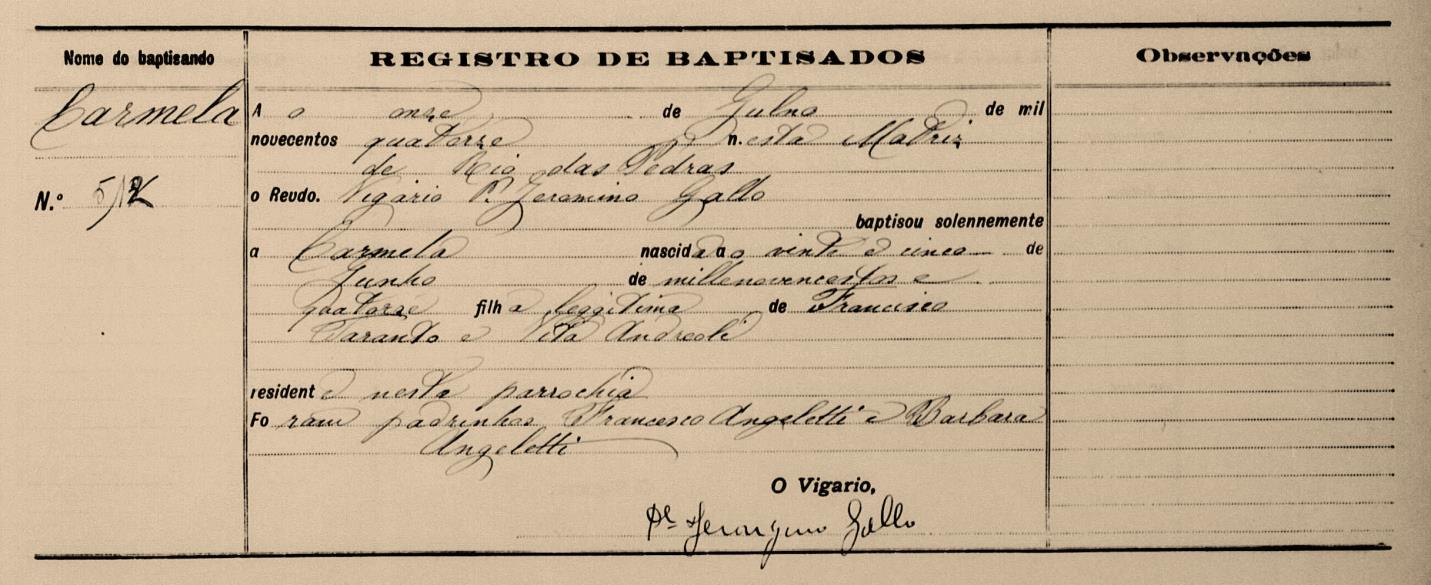 Nome do baptisando
REGISTRO DE BAPTISADOS
Observações
Carmela
N.º
A o onze de Julno de mil
novecentos quatorze n.esta Matriz
de Rio das Pedras
o Revdo. Vigario P. Jeronimo Gallo
baptisou solennemente
a Carmela nascida ao vinte e cinco de
Junho de millenovencestos e
quatorze filha leggitima de Francisco
Taranto e Vita Andreoli
residente nesta parrochia
Foram padrinhos Francesco Angeletti e Barbara
Angeletti
O Vigario,
Pe Jeronymo Gallo